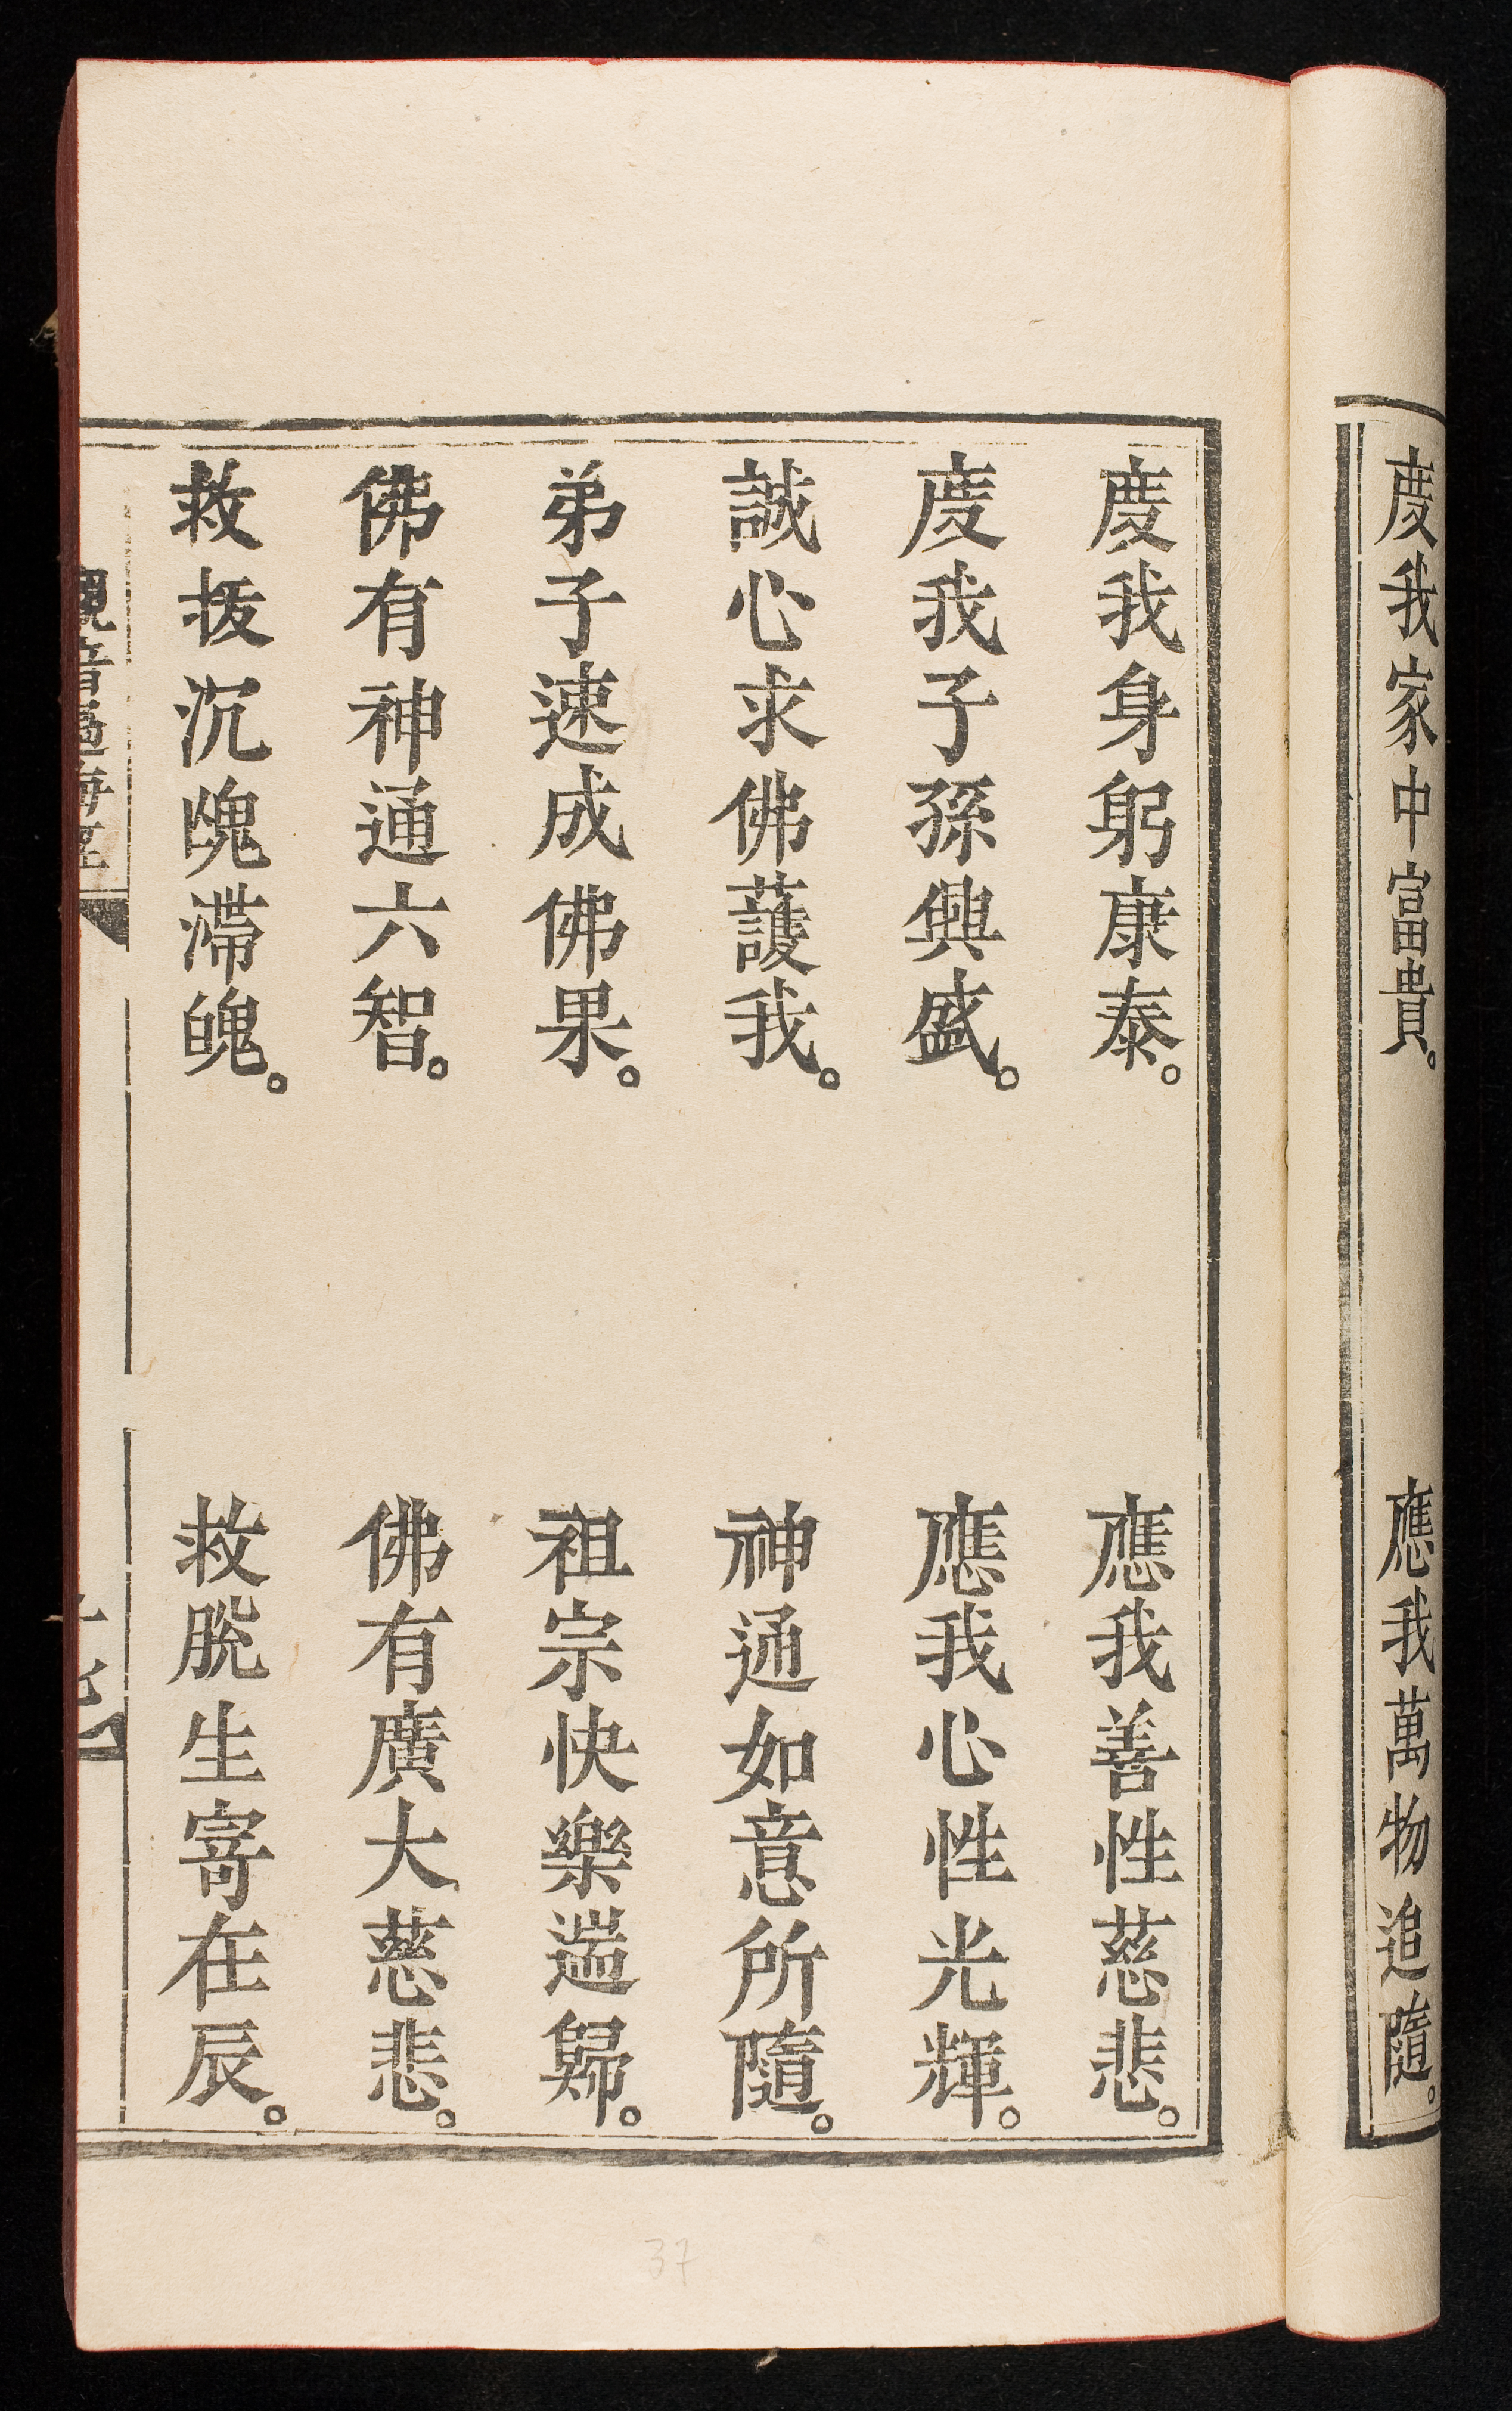 度我家中富貴。 應我萬物追隨。
度我身躬康泰。 應我善性慈悲。
度我子孫興盛。 應我心性光輝。
誠心求佛護我。 神通如意所隨。
弟子速成佛果。 祖宗快樂遄歸。
佛有神通六智。 佛有廣大慈悲。
救拔沉魂滯魄。 救脫生寄在辰。
觀音
37